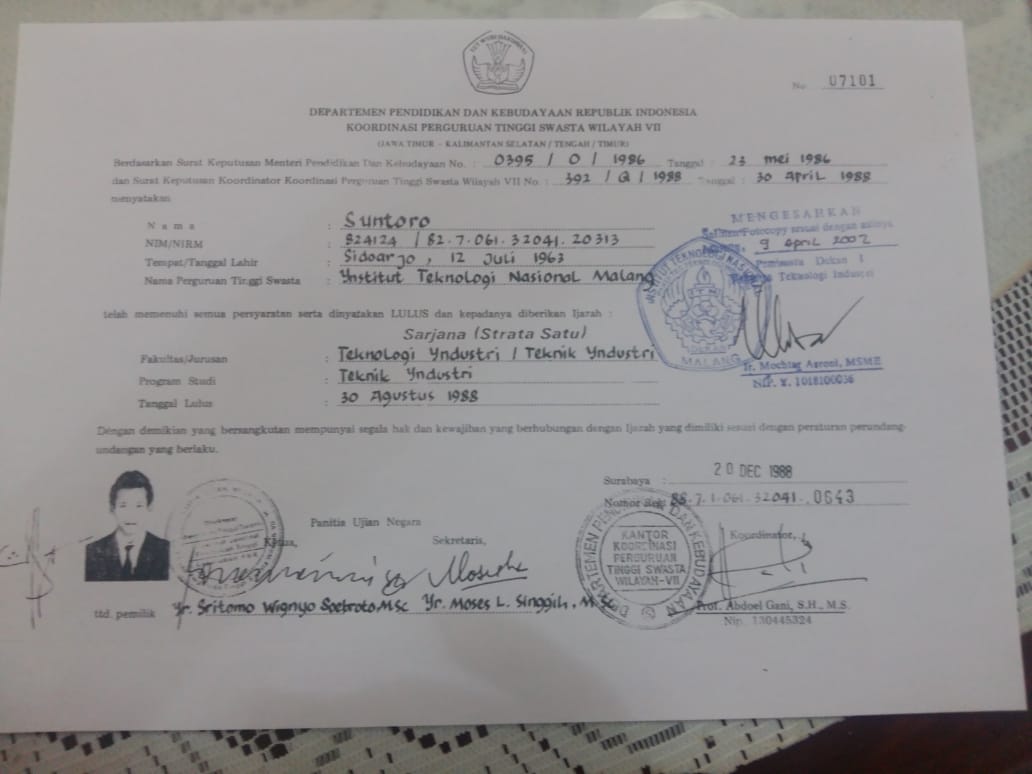 No. 07101
DEPARTEMEN PENDIDIKAN DAN KEBUDAYAAN REPUBLIK INDONESIA
KOORDINASI PERGURUAN TINGGI SWASTA WILAYAH VII
(JAWA TIMUR - KALIMANTAN SELATAN / TENGAH / TIMUR)
Berdasarkan Surat Keputusan Menteri Pendidikan Dan Kebudayaan No. : 0395 / O / 1986 Tanggal : 23 mei 1986
dan Surat Keputusan Koordinator Koordinasi Perguruan Tinggi Swasta Wilayah VII No. : 392 / Q / 1988 Tanggal : 30 April 1988
menyatakan
Nama : Suntoro
NIM/NIRM : 824124 / 82.7.061.32041.20313
Tempat/Tanggal Lahir : Sidoarjo, 12 Juli 1963
Nama Perguruan Tinggi Swasta : Ynstitut Teknologi Nasional Malang
MENGESAHKAN
Fotocopy sesuai dengan aslinya
9 April 2002
Pembantu Dekan I
Teknologi Industri
INSTITUT TEKNOLOGI NASIONAL
DEKAN
MALANG
Ir. Mochtar Asroni, MSME
NIP. Y. 1018100036
telah memenuhi semua persyaratan serta dinyatakan LULUS dan kepadanya diberikan Ijazah :
Sarjana (Strata Satu)
Fakultas/Jurusan : Teknologi Yndustri / Teknik Yndustri
Program Studi : Teknik Yndustri
Tanggal Lulus : 30 Agustus 1988
Dengan demikian yang bersangkutan mempunyai segala hak dan kewajiban yang berhubungan dengan Ijazah yang dimiliki sesuai dengan peraturan perundang-
undangan yang berlaku.
Surabaya : 20 DEC 1988
Nomor Seri : 88.7.1.061.32041.0643
Panitia Ujian Negara
Ketua, Sekretaris,
Koordinator,
KANTOR
KOORDINASI
PERGURUAN
TINGGI SWASTA
WILAYAH-VII
DEPARTEMEN PENDIDIKAN DAN KEBUDAYAAN
ttd. pemilik Yr. Sritomo Wignyo Soebroto, MSc Yr. Moses L. Singgih, MSc
Prof. Abdoel Gani, S.H., M.S.
Nip. 130445324